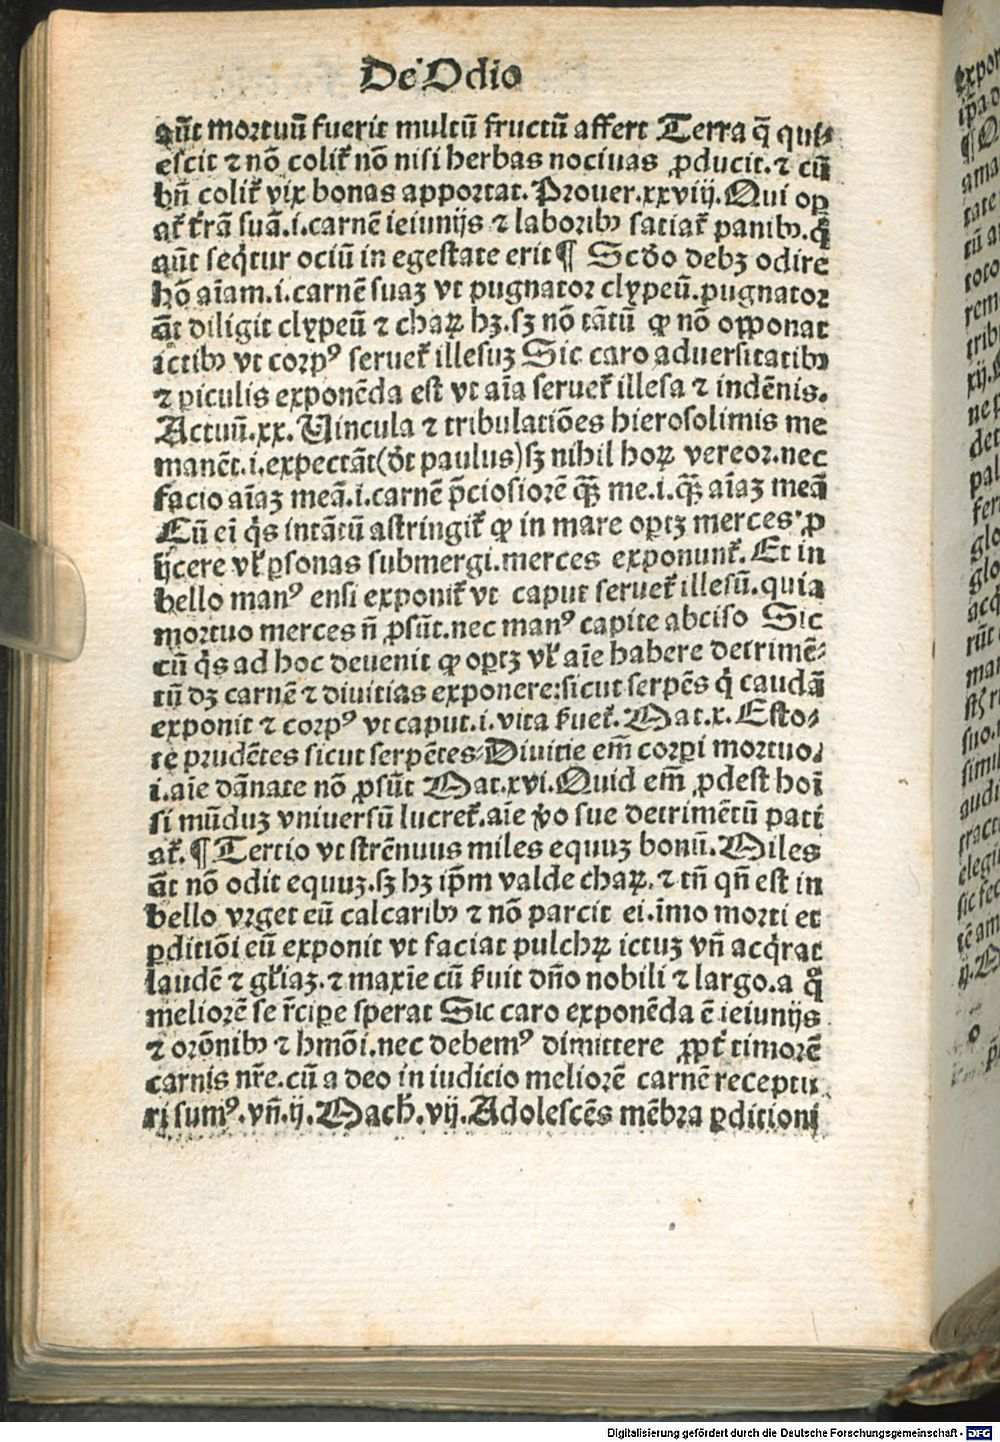 De Odio
aūt mortuū fuerit multū fructū affert Terra q̄ qui⸗
escit ⁊ nō colit᷑ nō nisi herbas nociuas ꝓducit.⁊ cū
bn̄ colit᷑ vix bonas apportat. Prouer.xxviij. Qui oꝑ
at᷑ t᷑rā suā.i.carnē ieiunijs ⁊ laboribꝰ satiat᷑ panibꝰ.q̇
aūt seq̇tur ociū in egestate erit ¶ Scd̓o debꝫ odire
hō aīam.i.carnē suaꝫ vt pugnator clypeū.pugnator
āt diligit clypeū ⁊ charꝝ hꝫ.sꝫ nō tātū ꝙ nō opponat
ictibꝰ vt corpꝰ seruet᷑ illesuꝫ Sic caro aduersitatibꝰ
⁊ ꝑiculis exponēda est vt aīa seruet᷑ illesa ⁊ indēnis.
Actuū.xx. Vincula ⁊ tribulatiōes hierosolimis me
manēt.i.expectāt(dt̄ paulus)sꝫ nihil horꝝ vereor.nec
facio aīaꝫ meā.i.carnē p̄ciosiorē qꝫ̄ me.i.qꝫ̄ aīaꝫ meā
Cū eī q̇s intātū astringit᷑ ꝙ in mare oꝑtꝫ merces ꝓ
ijcere vl̓ ꝑsonas submergi.merces exponunt᷑. Et in
bello manꝰ ensi exponit᷑ vt caput seruet᷑ illesū.quia
mortuo merces n̄ ꝓsūt.nec manꝰ capite abciso Sic
cū q̇s ad hoc deuenit ꝙ oꝑtꝫ vl̓ aīe habere detrimē⸗
tū dꝫ carnē ⁊ diuitias exponere:sicut serpēs q̇ caudā
exponit ⁊ corpꝰ vt caput.i.vita f᷑uet᷑. Mat.x. Esto⸗
te prudētes sicut serpētes⸗Diuitie em̄ corpi mortuo.
i.aīe dānate nō ꝓsūt Mat.xvi.Quid em̄ ꝓdest hoī
si mūduꝫ vniuersū lucret᷑.aīe v̓o sue detrimētū pati
at᷑. ¶ Tercio vt strēnuus miles equuꝫ bonū. Miles
āt nō odit equuꝫ.sꝫ hꝫ ip̄m valde charꝝ.⁊ tn̄ qn̄ est in
bello vrget eū calcaribꝰ ⁊ nō parcit ei.īmo morti et
ꝑditiōi eū exponit vt faciat pulchꝝ ictuꝫ vn̄ acq̇rat
laudē ⁊ gl̓iaꝫ.⁊ maxīe cū f᷑uit dn̄o nobili ⁊ largo.a q̊
meliorē se r̄cipe sperat Sic caro exponēda ē ieiunijs
⁊ orōnibꝰ ⁊ hmōi.nec debemꝰ dimittere ꝓpt᷑ timorē
carnis nr̄e.cū a deo in iudicio meliorē carnē receptu
ri sumꝰ.vn̄.ij. Mach̓.vij. Adolescēs mēbra ꝑditioni
Digitalisierung gefördert durch die Deutsche Forschungsgemeinschaft - DFG